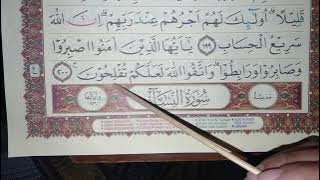 قَلِيلًا ۗ أُولَٰئِكَ لَهُمْ أَجْرُهُمْ عِنْدَ رَبِّهِمْ ۗ إِنَّ اللَّهَ
سَرِيعُ الْحِسَابِ ١٩٩ يَا أَيُّهَا الَّذِينَ آمَنُوا اصْبِرُوا
وَصَابِرُوا وَرَابِطُوا ۗ وَاتَّقُوا اللَّهَ لَعَلَّكُمْ تُفْلِحُونَ ٢٠٠
سُورَةُ النِّسَاءِ